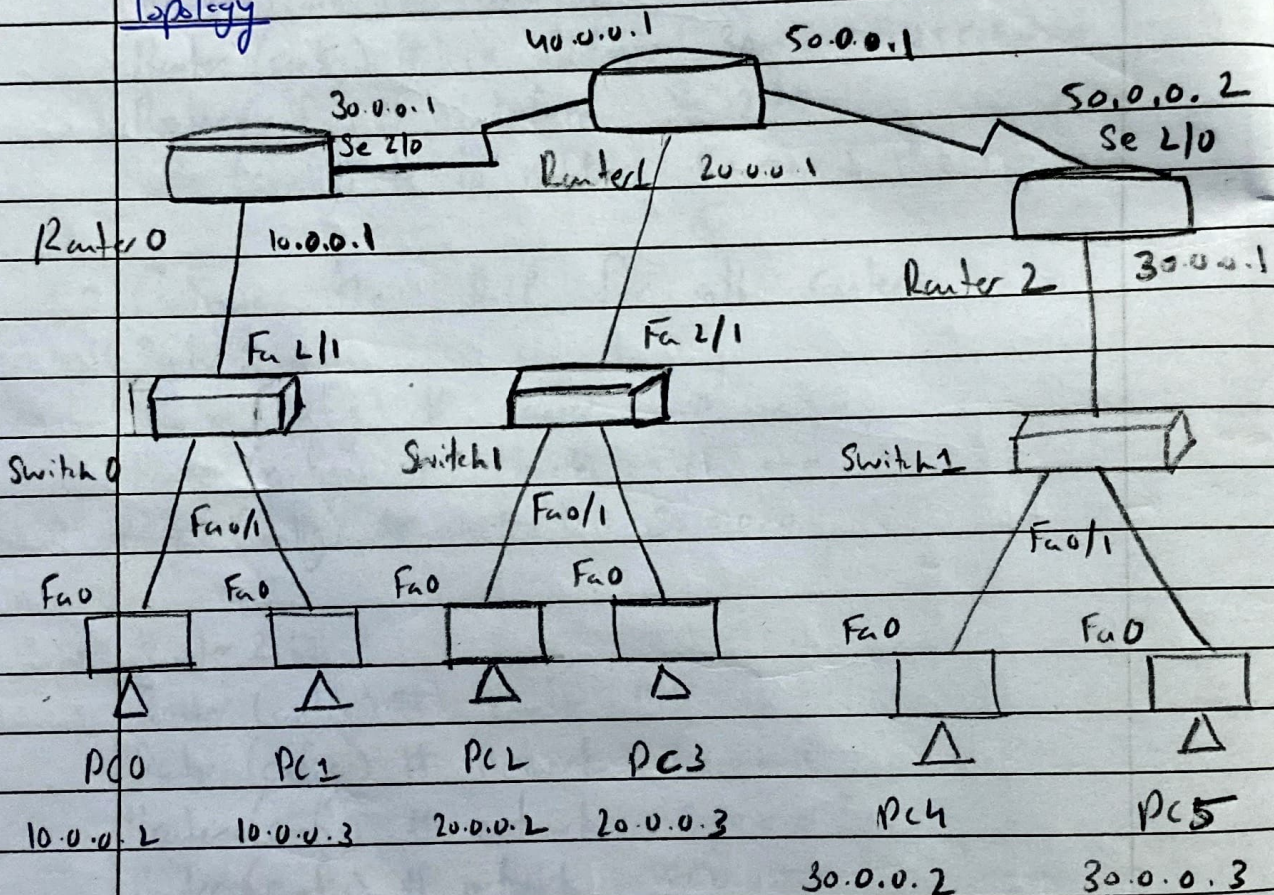 Topology
40.0.0.1 50.0.0.1
30.0.0.1 50.0.0.2
Se 2/0 Se 2/0
Router1 20.0.0.1
Router 0 10.0.0.1
Router 2 30.0.0.1
Fa 2/1 Fa 2/1
Switch 0 Switch1 Switch1
Fa0/1 Fa0/1 Fa0/1
Fa0 Fa0 Fa0 Fa0
Fa0 Fa0
PC0 PC1 PC2 PC3
PC4 PC5
10.0.0.2 10.0.0.3 20.0.0.2 20.0.0.3
30.0.0.2 30.0.0.3